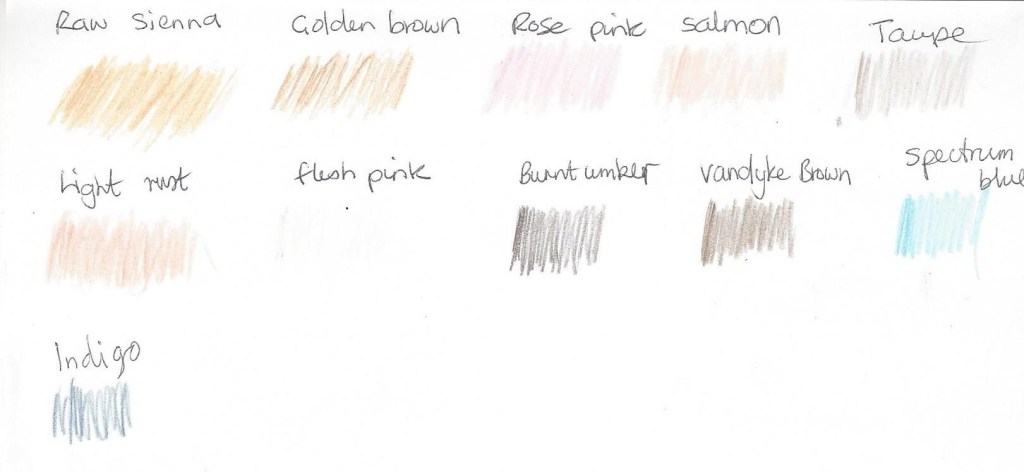 Raw Sienna
Golden brown
Rose pink
salmon
Taupe
Light rust
flesh pink
Burnt umber
vandyke Brown
spectrum
blue
Indigo